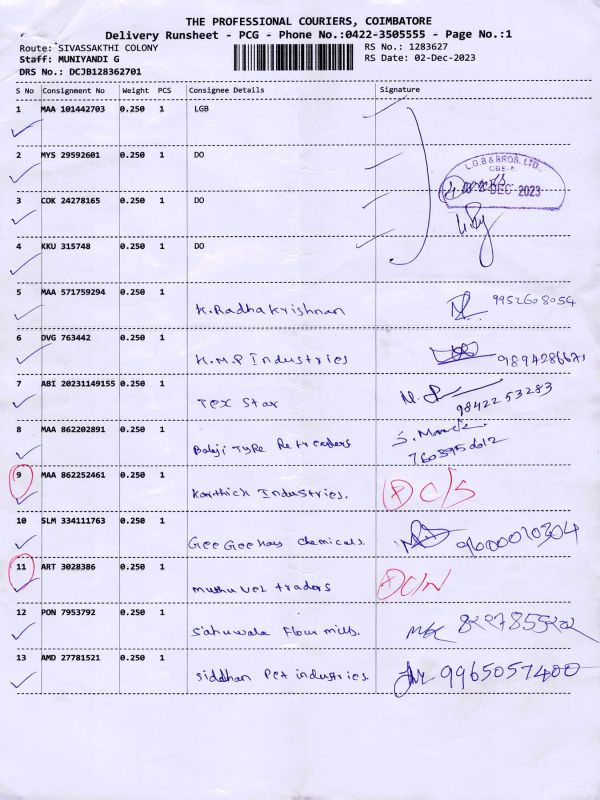 THE PROFESSIONAL COURIERS, COIMBATORE
Delivery Runsheet - PCG - Phone No.:0422-3505555 - Page No.:1
Route: SIVASSAKTHI COLONY RS No.: 1283627
Staff: MUNIYANDI G RS Date: 02-Dec-2023
DRS No.: DCJB128362701
S No Consignment No Weight PCS Consignee Details Signature
1 MAA 101442703 0.250 1 LGB
2 MYS 29592601 0.250 1 DO
L.G.B & BROS. LTD.,
CBE-6.
DEC 2023
3 COK 24278165 0.250 1 DO
4 KKU 315748 0.250 1 DO
5 MAA 571759294 0.250 1
K.Radhakrishnan 9952608054
6 DVG 763442 0.250 1
H.M.P Industries 9894286671
7 ABI 20231149155 0.250 1
Tex Star 9842253283
8 MAA 862202891 0.250 1
Balaji Tyre Retreaders
9 MAA 862252461 0.250 1
Karthick Industries. C/S
10 SLM 334111763 0.250 1
Gee Gee Kay chemicals. 9600010304
11 ART 3028386 0.250 1
muthu vel traders
12 PON 7953792 0.250 1
Sahuwala Flour mills.
13 AMD 27781521 0.250 1
Siddhan Pet industries 9965057400